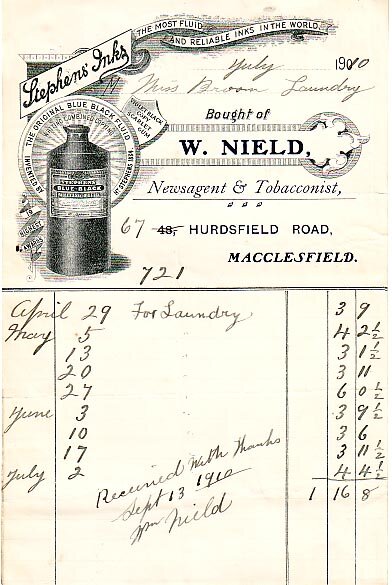 THE MOST FLUID
AND RELIABLE INKS IN THE WORLD.
Stephens' Inks
July 1910
Miss Broom Laundry
THE ORIGINAL BLUE BLACK FLUID
INVENTED BY
HY STEPHENS 1834
VIOLET BLACK
COPYING
SCARLET
GUM
BLUE BLACK
HIGHEST
AWARDS
Bought of
W. NIELD,
Newsagent & Tobacconist,
67 48, HURDSFIELD ROAD,
MACCLESFIELD.
721
April 29 For Laundry 3 9
May 5 4 2½
13 3 1½
20 3 11
27 6 0½
June 3 3 9½
10 3 6
17 3 11½
July 2 4 4½
1 16 8
Received With Thanks
Sept 13 1910
Wm Nield